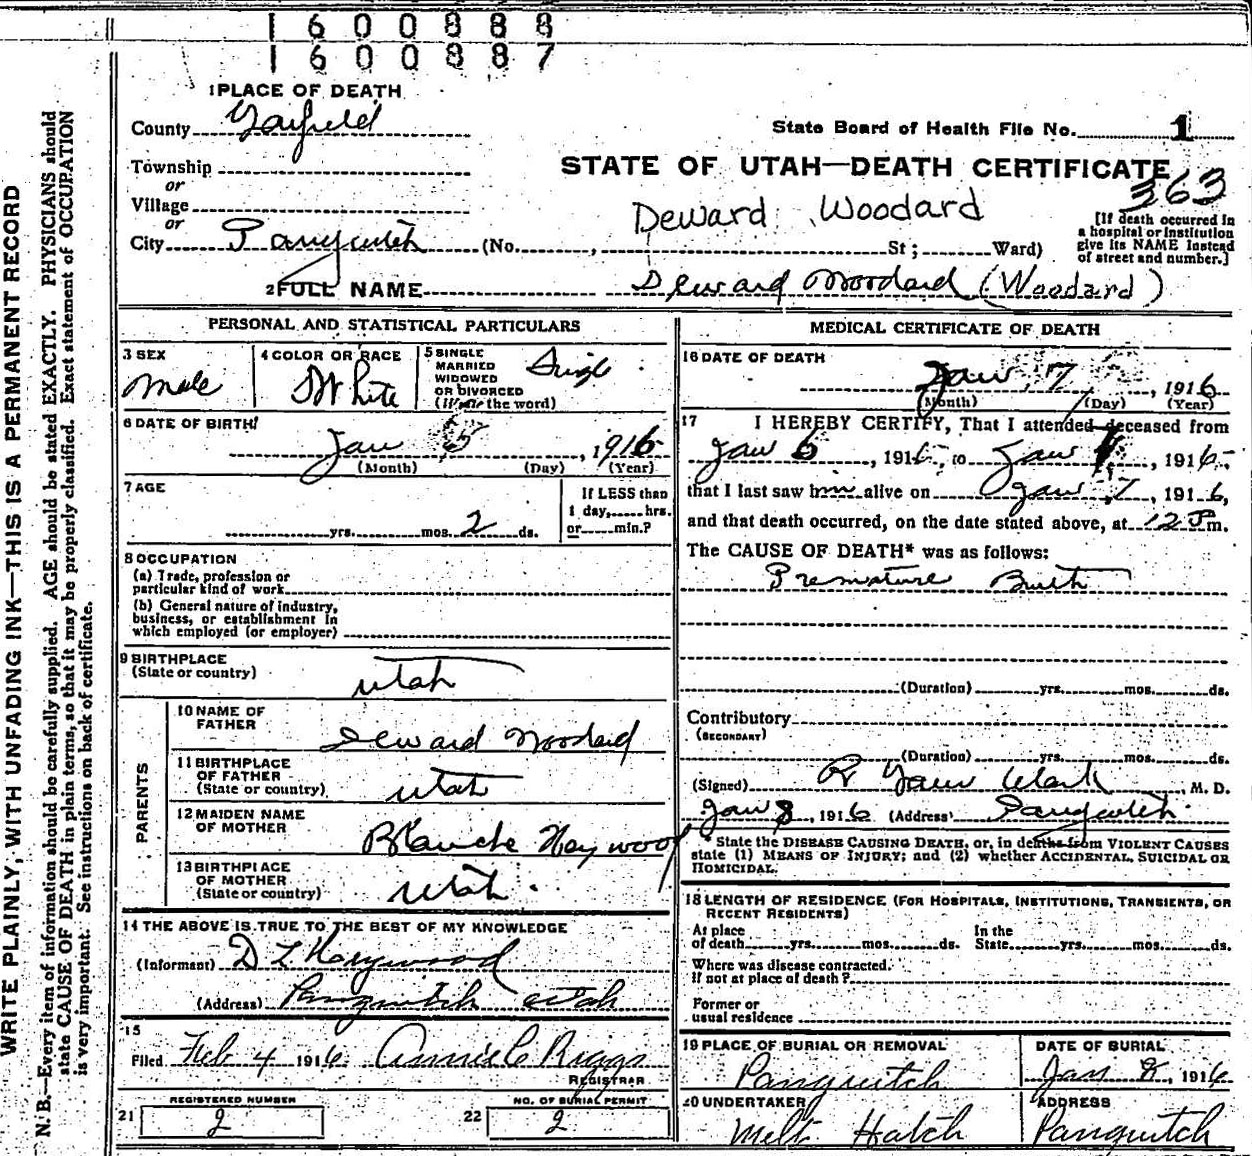 1600888
1600887
1 PLACE OF DEATH
County Garfield
State Board of Health File No. 1
Township
or
STATE OF UTAH—DEATH CERTIFICATE
363
Village
or
Deward Woodard
City Panguitch (No. , St; Ward)
[If death occurred in
a hospital or institution
give its NAME instead
of street and number.]
2 FULL NAME Deward Woodard (Woodard)
PERSONAL AND STATISTICAL PARTICULARS
3 SEX
Male
4 COLOR OR RACE
White
5 SINGLE
MARRIED
WIDOWED
OR DIVORCED
(Write the word)
Single
6 DATE OF BIRTH
Jan 5, 1916
(Month) (Day) (Year)
7 AGE
yrs. mos. 2 ds.
If LESS than
1 day,......hrs.
or......min.?
8 OCCUPATION
(a) Trade, profession or
particular kind of work
(b) General nature of industry,
business, or establishment in
which employed (or employer)
9 BIRTHPLACE
(State or country)
Utah
PARENTS
10 NAME OF
FATHER
Deward Woodard
11 BIRTHPLACE
OF FATHER
(State or country)
Utah
12 MAIDEN NAME
OF MOTHER
Blanche Haywood
13 BIRTHPLACE
OF MOTHER
(State or country)
Utah.
14 THE ABOVE IS TRUE TO THE BEST OF MY KNOWLEDGE
(Informant) D L Haywood
(Address) Panguitch Utah
15
Filed Feb 4 1916 Annie C Riggs
REGISTRAR
21 REGISTERED NUMBER
2
22 NO. OF BURIAL PERMIT
2
MEDICAL CERTIFICATE OF DEATH
16 DATE OF DEATH
Jan 7, 1916
(Month) (Day) (Year)
17 I HEREBY CERTIFY, That I attended deceased from
Jan 6, 1916, to Jan 7, 1916,
that I last saw him alive on Jan 7, 1916,
and that death occurred, on the date stated above, at 12 P m.
The CAUSE OF DEATH* was as follows:
Premature Birth
(Duration) yrs. mos. ds.
Contributory
(SECONDARY)
(Duration) yrs. mos. ds.
(Signed) R Clark, M. D.
Jan 8, 1916 (Address) Panguitch
* State the DISEASE CAUSING DEATH, or, in deaths from VIOLENT CAUSES
state (1) MEANS OF INJURY; and (2) whether ACCIDENTAL, SUICIDAL OR
HOMICIDAL.
18 LENGTH OF RESIDENCE (FOR HOSPITALS, INSTITUTIONS, TRANSIENTS, OR
RECENT RESIDENTS)
At place
of death yrs. mos. ds.
In the
State yrs. mos. ds.
Where was disease contracted.
if not at place of death?
Former or
usual residence
19 PLACE OF BURIAL OR REMOVAL
Panguitch
DATE OF BURIAL
Jan 8, 1916
20 UNDERTAKER
Melt Hatch
ADDRESS
Panguitch
WRITE PLAINLY, WITH UNFADING INK—THIS IS A PERMANENT RECORD
N. B.—Every item of information should be carefully supplied. AGE should be stated EXACTLY. PHYSICIANS should
state CAUSE OF DEATH in plain terms, so that it may be properly classified. Exact statement of OCCUPATION
is very important. See instructions on back of certificate.